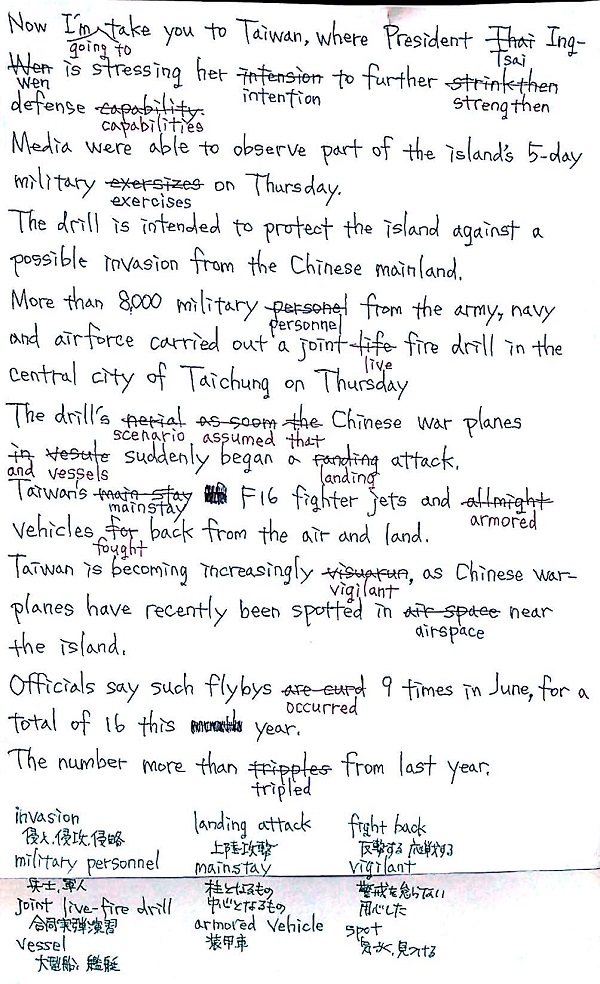 Now I'm take you to Taiwan, where President Thai Ing-
going to
Tsai
Wen is stressing her intension to further strinkthen
Wen
intention
strengthen
defense capability.
capabilities
Media were able to observe part of the island's 5-day
military exersizes on Thursday.
exercises
The drill is intended to protect the island against a
possible invasion from the Chinese mainland.
More than 8,000 military personel from the army, navy
personnel
and airforce carried out a joint life fire drill in the
live
central city of Taichung on Thursday
The drill's nerial as soom the Chinese war planes
scenario assumed that
in vesute suddenly began a randing attack.
and vessels
landing
Taiwan's main stay F16 fighter jets and allmight
mainstay
armored
vehicles for back from the air and land.
fought
Taiwan is becoming increasingly visuarun, as Chinese war-
vigilant
planes have recently been spotted in air space near
airspace
the island.
Officials say such flybys are curd 9 times in June, for a
occurred
total of 16 this year.
The number more than tripples from last year.
tripled
invasion landing attack fight back
侵入,侵攻,侵略 上陸攻撃 反撃する 応戦する
military personnel mainstay vigilant
兵士,軍人 柱となるもの 警戒を怠らない
joint live-fire drill 中心となるもの 用心した
合同実弾演習 armored vehicle spot
vessel 装甲車 気づく,見つける
大型船,艦艇